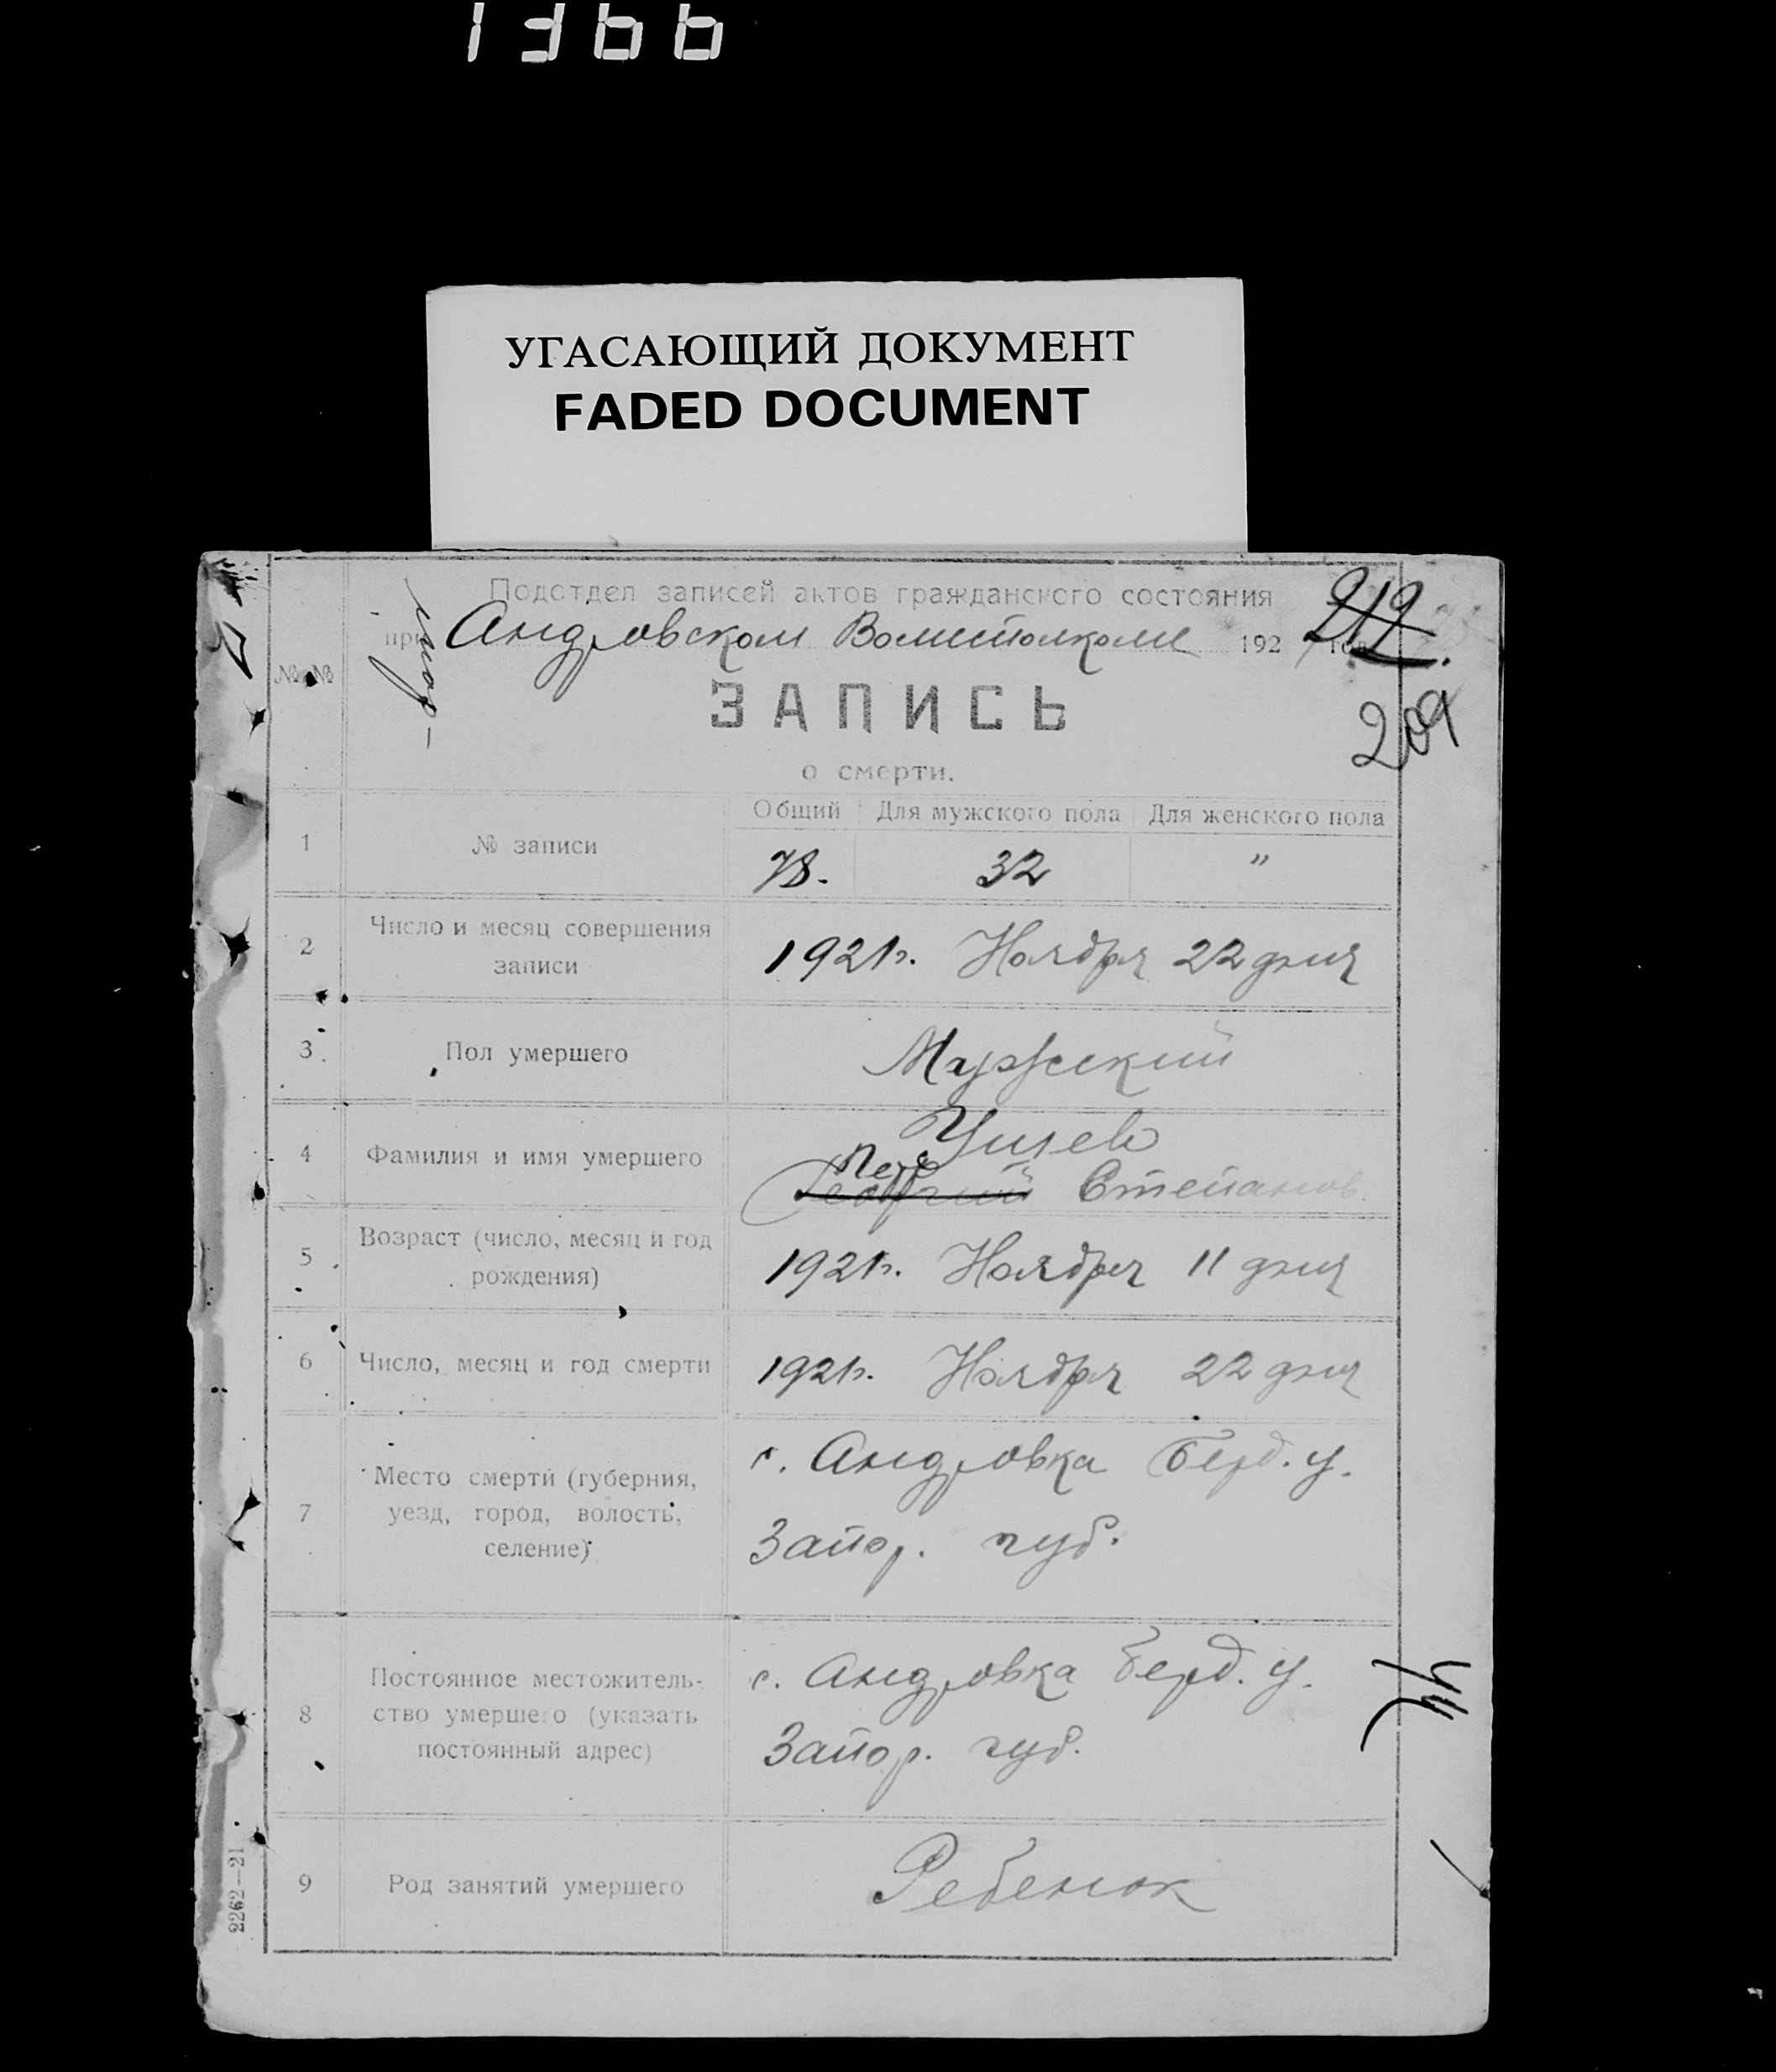 1366
УГАСАЮЩИЙ ДОКУМЕНТ
FADED DOCUMENT
Подотдел записей актов гражданского состояния
при Андровском Волисполкоме 192 год
212.
209
№ №
ЗАПИСЬ
о смерти.
Общий Для мужского пола Для женского пола
1 № записи 78. 32 "
2 Число и месяц совершения
записи
1921г. Ноября 22 дня
3 Пол умершего Мужский
4 Фамилия и имя умершего
Петр
Георгий Степанов.
5 Возраст (число, месяц и год
рождения)
1921г. Ноября 11 дня
6 Число, месяц и год смерти 1921г. Ноября 22 дня
7 Место смерти (губерния,
уезд, город, волость,
селение)
с. Андровка Берд. у.
Запор. губ.
8 Постоянное местожитель-
ство умершего (указать
постоянный адрес)
с. Андровка Берд. у.
Запор. губ.
9 Род занятий умершего Ребенок
2262—21